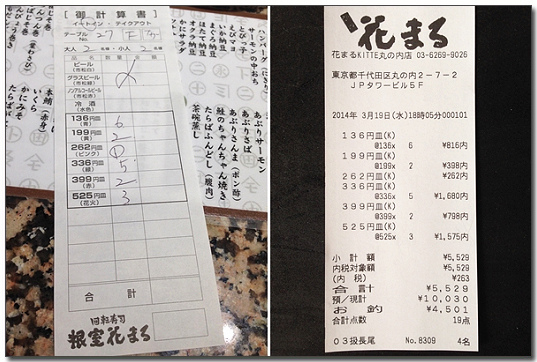 [御計算書]
イートイン・テイクアウト
テーブルNo. 27
大人 2 名・小人 2 名
品名 数量
ビール
(市松白)
グラスビール
(市松紅)
ノンアルコールビール
(市松緑)
冷酒
(水色)
136円皿 6
(青)
199円皿 2
(黄)
262円皿 1
(ピンク)
336円皿 5
(緑)
399円皿 2
(赤)
525円皿 3
(花火)
合計
回転寿司
根室花まる
ハンバーグ
サーモンのやおち
とびっこ
えびマヨ
ほたて納豆
まぐろ納豆
いか納豆
かにサラダ
あぶりサーモン
あぶりさば
あぶりさんま(ポン酢)
鮭のちゃんちゃん焼き
たらばふんどし(腹肉)
茶碗蒸し
本鮪(赤身)
いくら
かにみそ
花まる
花まるKITTE丸の内店 03-6269-9026
東京都千代田区丸の内2-7-2
JPタワービル5F
2014年 3月19日(水)18時05分000101
136円皿(K)
@136x 6 ¥816内
199円皿(K)
@199x 2 ¥398内
262円皿(K) ¥262内
336円皿(K)
@336x 5 ¥1,680内
399円皿(K)
@399x 2 ¥798内
525円皿(K)
@525x 3 ¥1,575内
小計額 ¥5,529
内税対象額 ¥5,529
(内税) ¥263
合計 ¥5,529
預/現計 ¥10,030
お釣 ¥4,501
合計点数 19点
03扱長尾 No.8309 4名